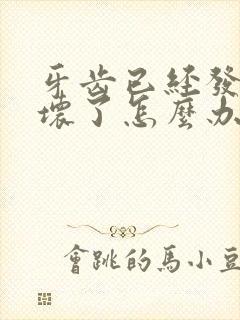 牙齒已經發
壞了怎麼办
會跳的馬小豆